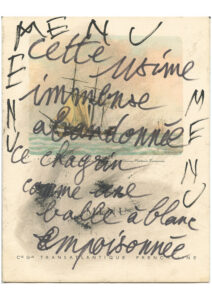 MENU
MENU
MENU
cette usine
immense
abandonnée
ce chagrin
comme une
balle à blanc
empoisonnée
Cie Gle TRANSATLANTIQUE FRENCH LINE